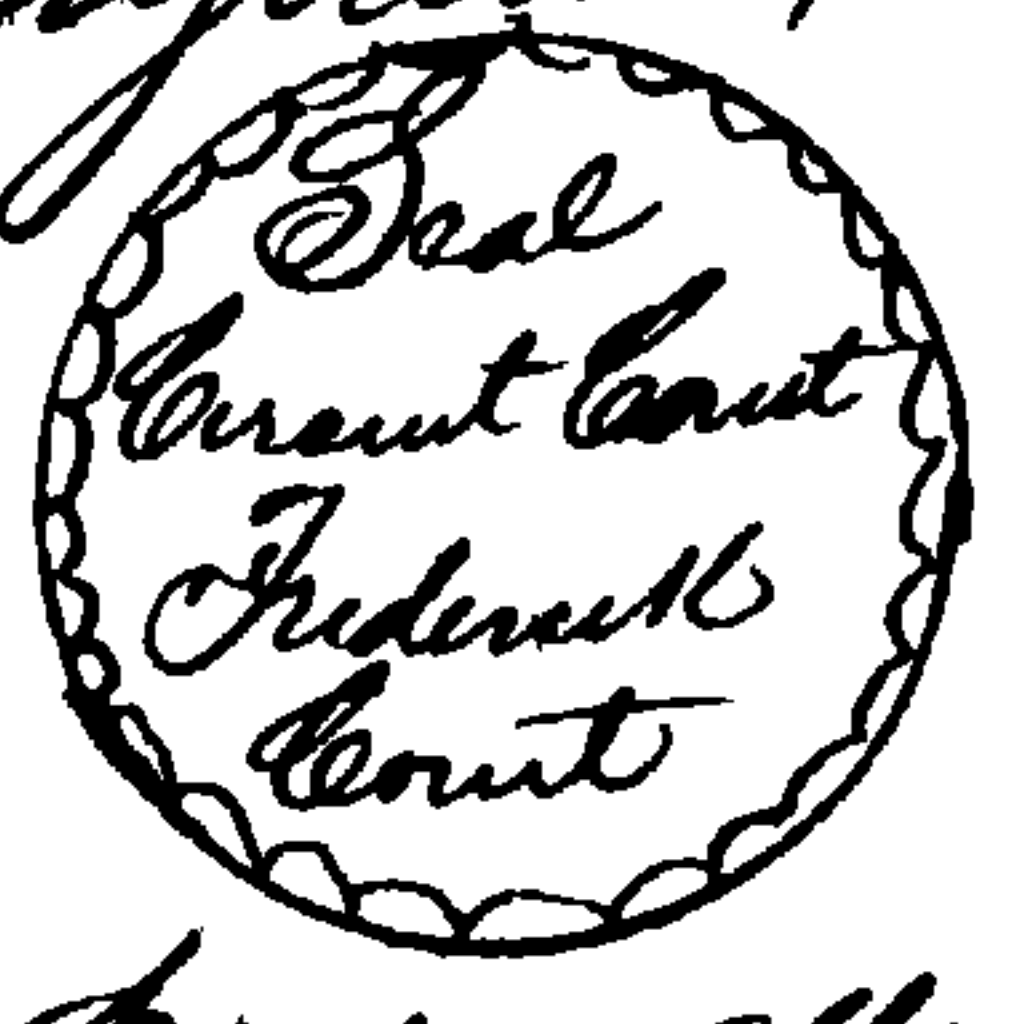 Seal
Circuit Court
Frederick
Court